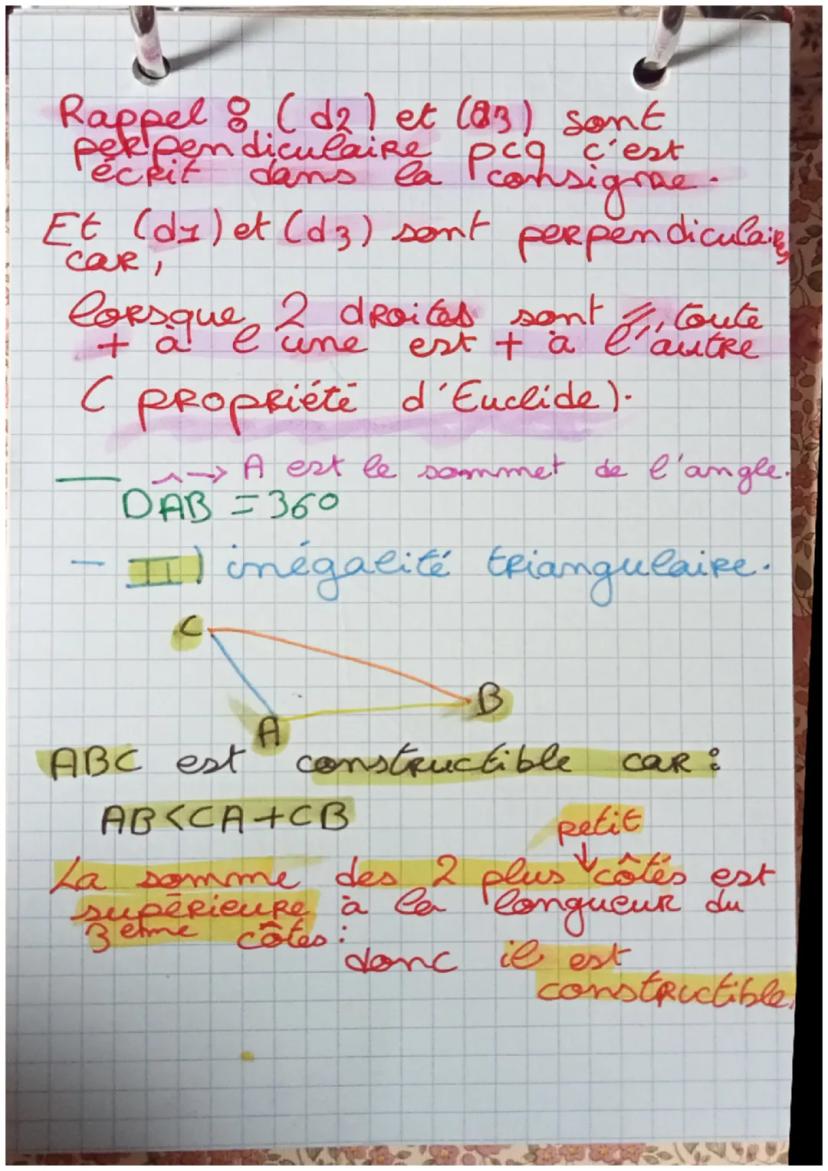 Rappel : (d2) et (d3) sont
perpendiculaire pcq c'est
écrit dans la consigne.
Et (d1) et (d3) sont perpendiculaires
car,
lorsque 2 droites sont //, toute
+ à l'une est + à l'autre
(propriété d'Euclide).
— ^ → A est le sommet de l'angle.
DAB = 360
- II) inégalité triangulaire.
C
B
A
ABC est constructible car :
AB<CA+CB
petit
↓
La somme des 2 plus côtés est
supérieure à la longueur du
3eme côtés :
donc il est
constructible.